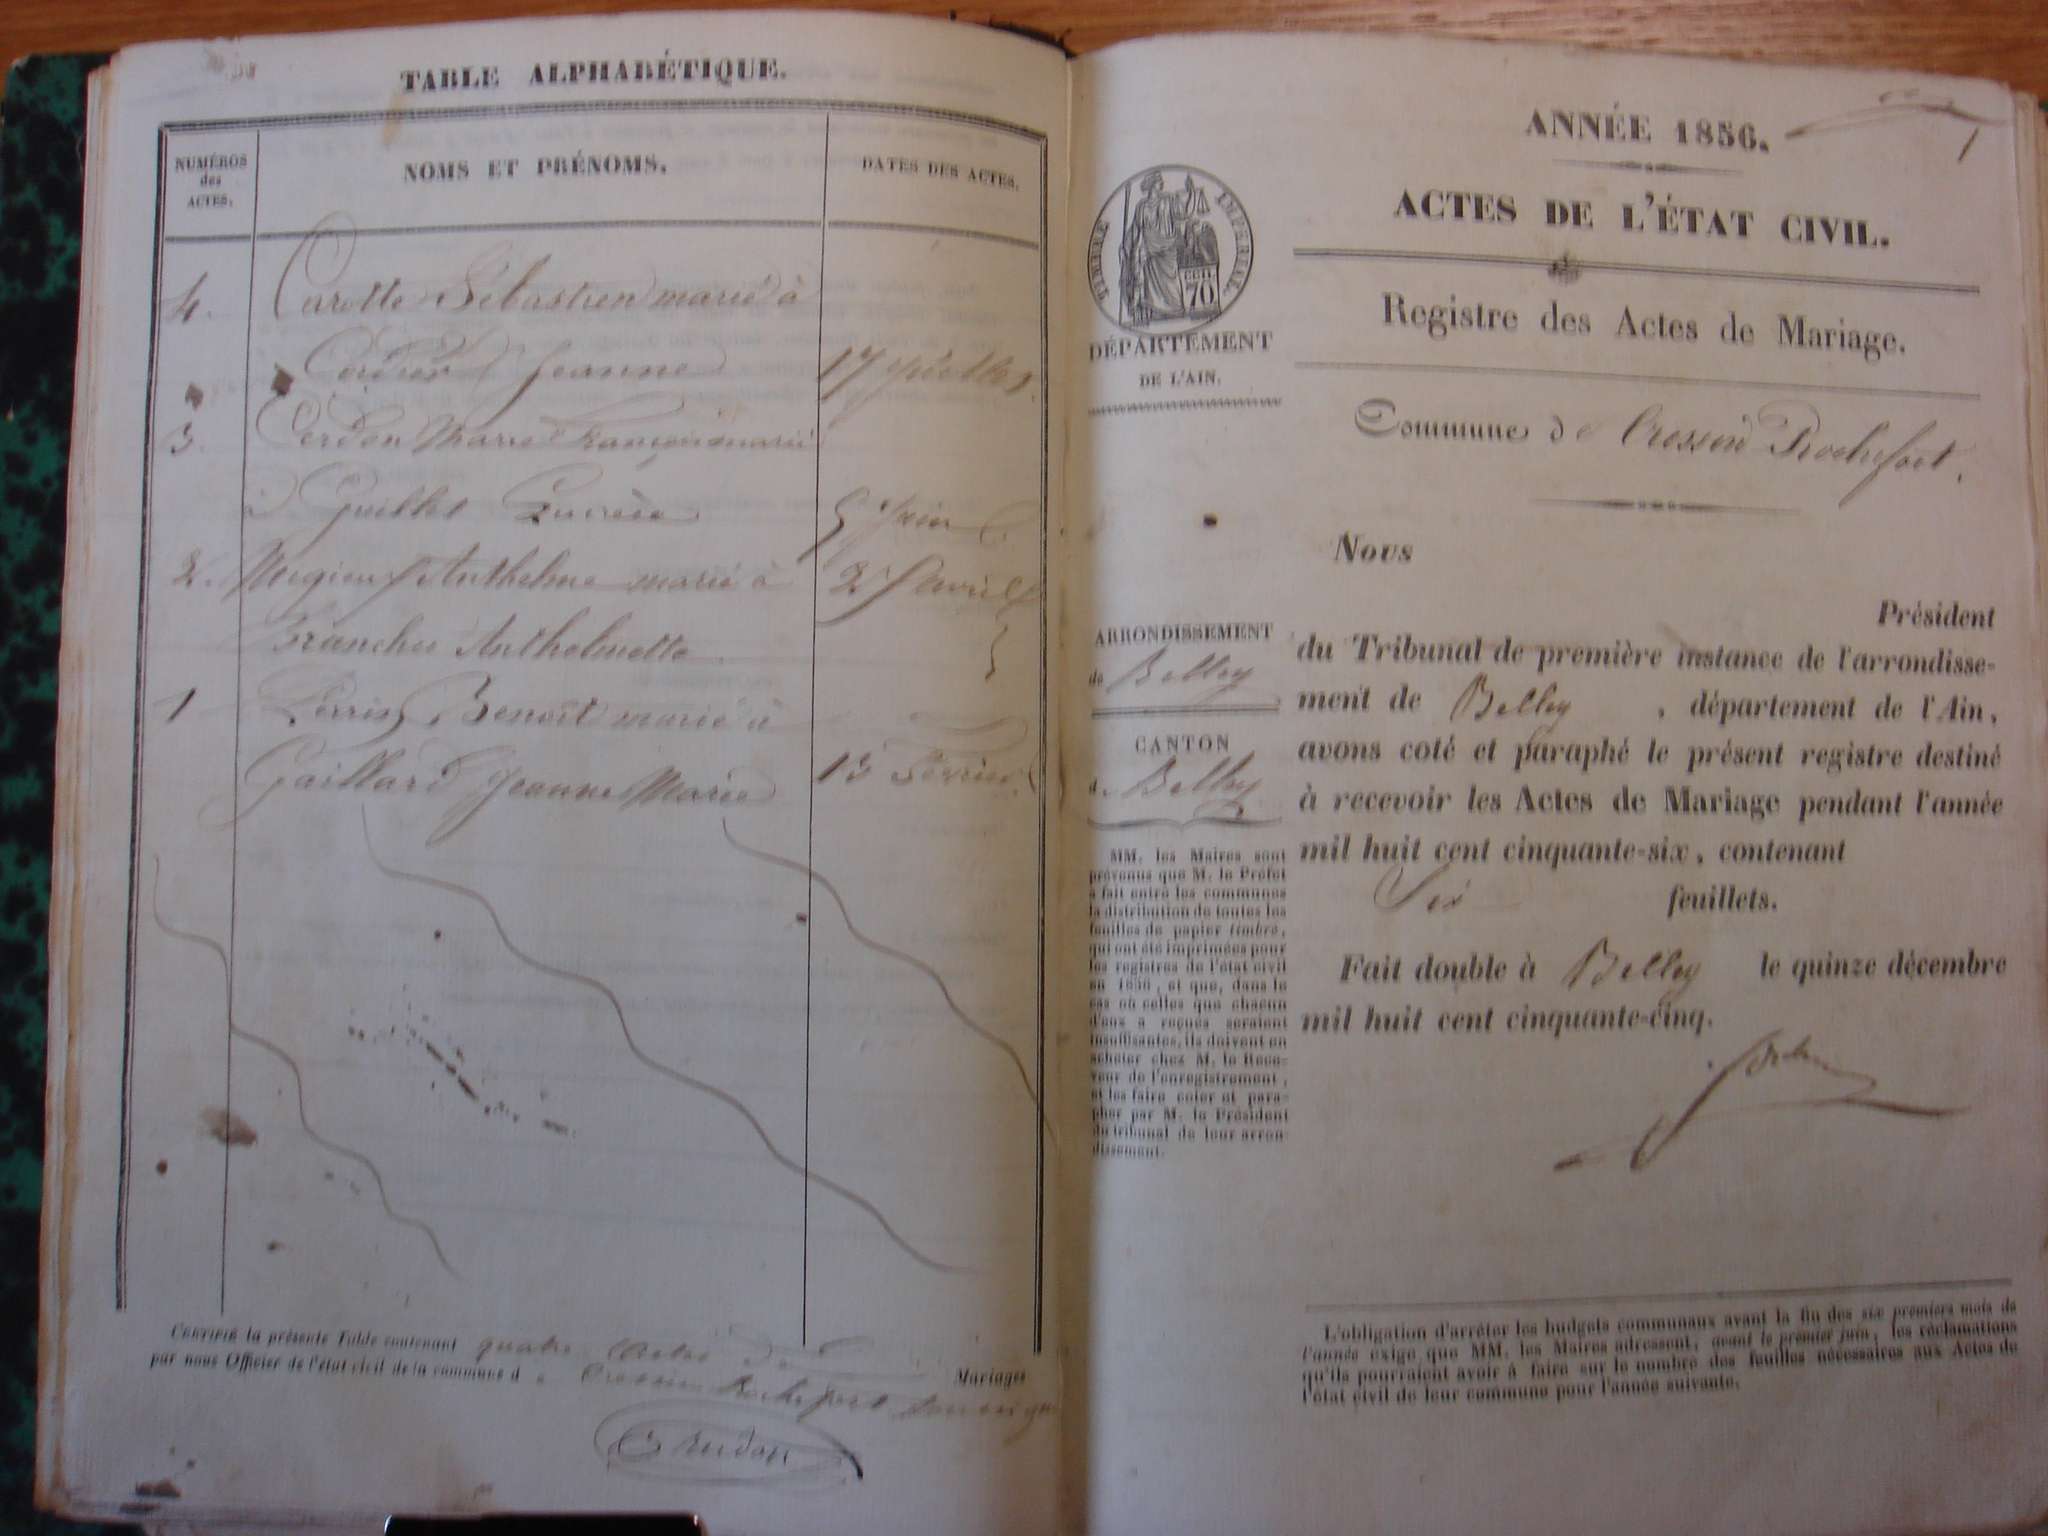 TABLE ALPHABÉTIQUE.
NUMÉROS
des
ACTES.
NOMS ET PRÉNOMS.
DATES DES ACTES.
4. Carotte Sébastien marié à
Jeanne 17
3. Cerdon Marie François marié
à Guillet 5 Juin
2. Mugieux Anthelme marié à 2 Avril
Branche Anthelmette
1 Perrin Benoît marié à
Gaillard Jeanne Marie 13 Février
CERTIFIÉ la présente Table contenant quatre Actes de Mariages
par nous Officier de l'état civil de la commune de Cressin Rochefort
ANNÉE 1856.
1
ACTES DE L'ÉTAT CIVIL.
TIMBRE IMPÉRIAL
CEN.
70
DÉPARTEMENT
DE L'AIN.
Registre des Actes de Mariage.
Commune de Cressin Rochefort.
Nous
Président
du Tribunal de première instance de l'arrondisse-
ment de Belley, département de l'Ain,
avons coté et paraphé le présent registre destiné
à recevoir les Actes de Mariage pendant l'année
mil huit cent cinquante-six, contenant
Six feuillets.
Fait double à Belley le quinze décembre
mil huit cent cinquante-cinq.
ARRONDISSEMENT
de Belley
CANTON
de Belley
MM. les Maires sont
prévenus que M. le Préfet
a fait entre les communes
la distribution de toutes les
feuilles de papier timbré,
qui ont été imprimées pour
les registres de l'état civil
en 1856, et que, dans le
cas où celles que chacun
d'eux a reçues seraient
insuffisantes, ils doivent en
acheter chez M. le Rece-
veur de l'enregistrement,
et les faire coter et para-
pher par M. le Président
du tribunal de leur arron-
dissement.
L'obligation d'arrêter les budgets communaux avant la fin des six premiers mois de
l'année exige que MM. les Maires adressent, avant le premier juin, les réclamations
qu'ils pourraient avoir à faire sur le nombre des feuilles nécessaires aux Actes de
l'état civil de leur commune pour l'année suivante.